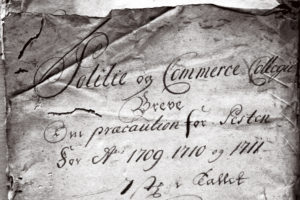 Politie og Commerce Collegie
Breve
Om præcaution for Pesten
For A° 1709 1710 og 1711
i Tallet